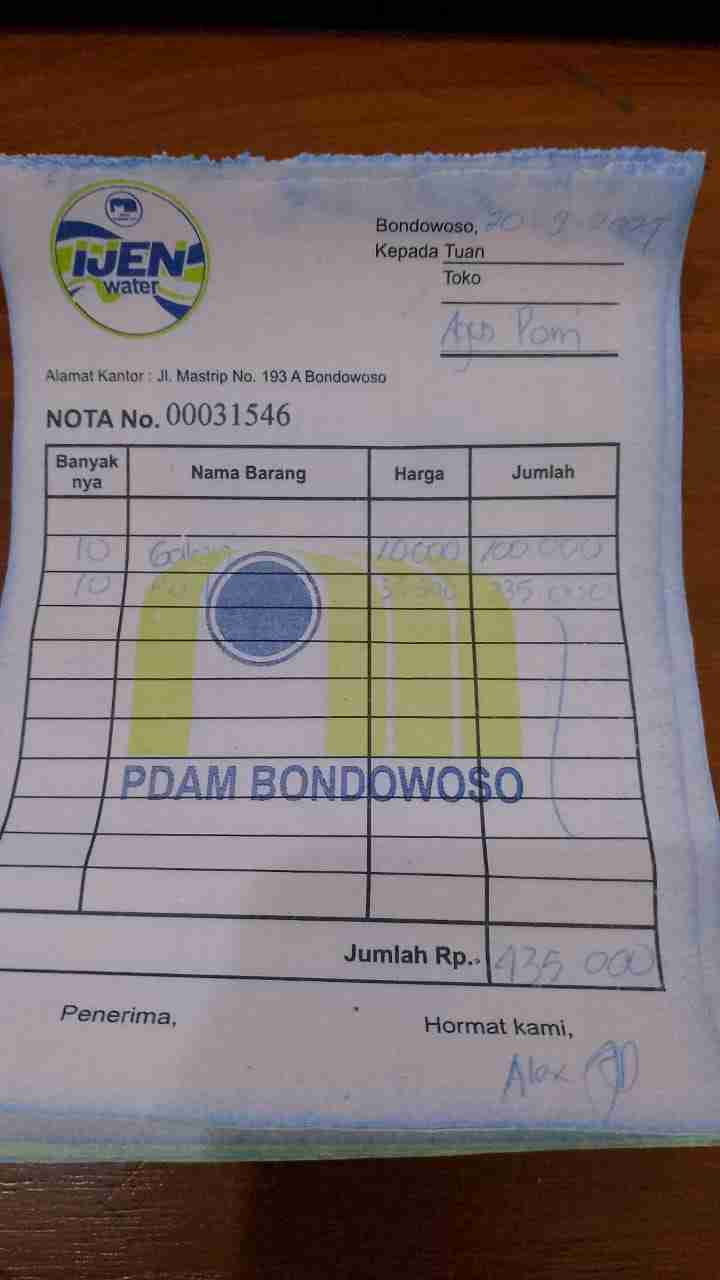 IJEN
water
Bondowoso, 20 9
Kepada Tuan
Toko
Agus Pomi
Alamat Kantor : Jl. Mastrip No. 193 A Bondowoso
NOTA No. 00031546
Banyak nya Nama Barang Harga Jumlah
10 Galon 10.000 100.000
10 335 000
PDAM BONDOWOSO
Jumlah Rp.. 435 000
Penerima,
Hormat kami,
Alex